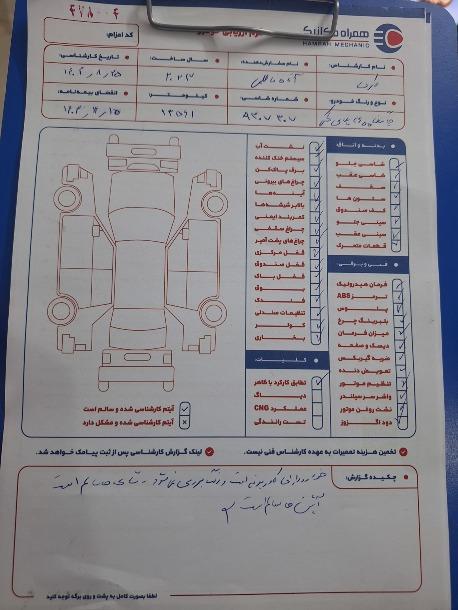 ۴۲۸۰۰۴
کد اعزام:
همراه مکانیک
HAMRAH MECHANIC
نام کارشناس:
نام سفارش‌دهنده:
سال ساخت:
تاریخ کارشناسی:
۲۰۲۳
نوع و رنگ خودرو:
شماره شاسی:
کیلومتر:
انقضای بیمه‌نامه:
A۳۰۷۳۰۷
۱۳۵۶۱
بدنه و اتاق:
شاسی جلو
شاسی عقب
سقف
ستون ها
کف صندوق
سینی جلو
سینی عقب
قطعات متحرک
فنی و برقی:
فرمان هیدرولیک
ترمز ABS
پلوس
بلبرینگ چرخ
میزان فرمان
دیسک و صفحه
ضربه گیربکس
تعویض دنده
تنظیم موتور
واشر سرسیلندر
نشت روغن موتور
دود اگزوز
نشت آب
سیستم خنک کننده
برف پاک‌کن
چراغ های بیرونی
آینه ها
بالابر شیشه‌ها
کمربند ایمنی
چراغ سقفی
چراغ های پشت آمپر
قفل مرکزی
قفل صندوق
قفل باک
بوق
فندک
تنظیمات صندلی
کولر
بخاری
کلیات:
تطابق کارکرد با ظاهر
دیاگ
عملکرد CNG
تست رانندگی
آیتم کارشناسی شده و سالم است
آیتم کارشناسی شده و مشکل دارد
تخمین هزینه تعمیرات به عهده کارشناس فنی نیست.
لینک گزارش کارشناسی پس از ثبت پیامک خواهد شد.
چکیده گزارش:
لطفا بصورت کامل به پشت و روی برگه توجه کنید